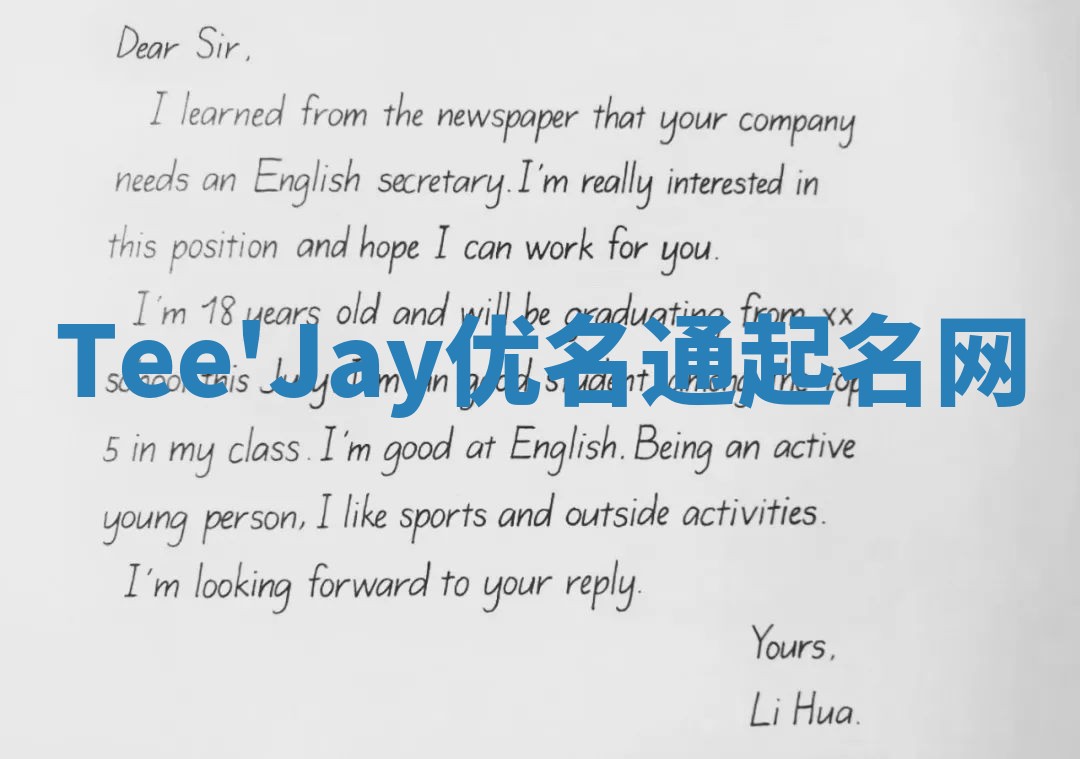 Dear Sir,
I learned from the newspaper that your company
needs an English secretary. I'm really interested in
this position and hope I can work for you.
I'm 18 years old and will be graduating from xx
Tee'Jay优名通起名网
school this July. I'm an good student among the top
5 in my class. I'm good at English. Being an active
young person, I like sports and outside activities.
I'm looking forward to your reply.
Yours,
Li Hua.